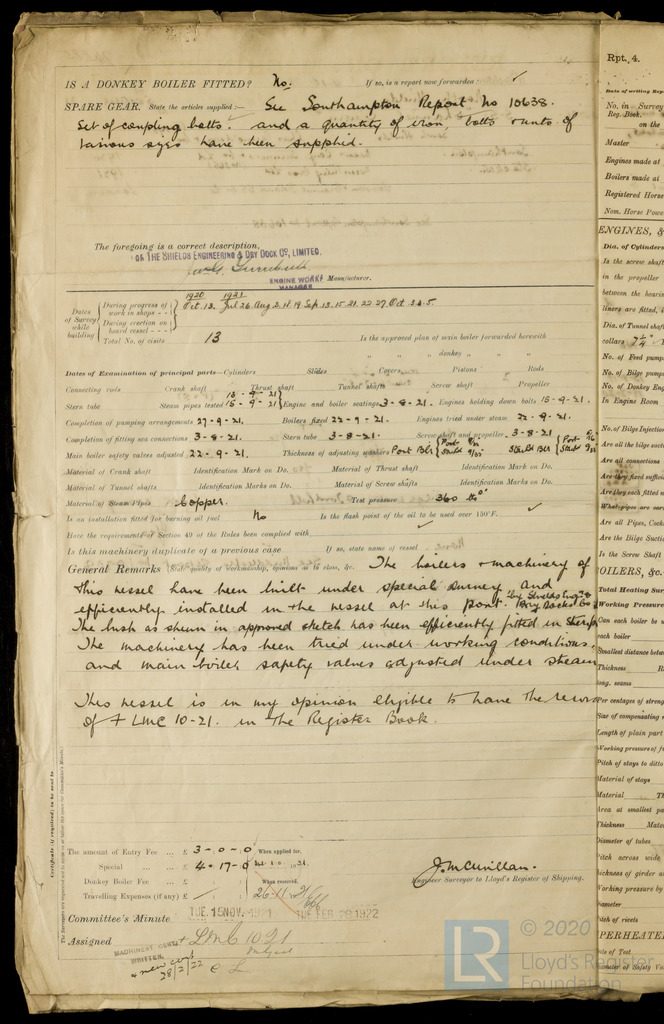 IS A DONKEY BOILER FITTED? No. If so, is a report now forwarded? ✓
SPARE GEAR. State the articles supplied:— See Southampton Report No 10638.
Set of coupling bolts. and a quantity of iron, bolts & nuts of
various sizes have been supplied.
The foregoing is a correct description,
FOR THE SHIELDS ENGINEERING & DRY DOCK CO, LIMITED.
ENGINE WORKS Manufacturer.
MANAGER
1920 1921
Dates of Survey while building
During progress of work in shops -- Oct. 13. Jul 26 Aug 2. 11. 19 Sep. 13. 15 21. 22 27. Oct 3. 4. 5.
During erection on board vessel ---
Total No. of visits 13
Is the approved plan of main boiler forwarded herewith
" " " donkey " " "
Dates of Examination of principal parts—Cylinders Slides Covers Pistons Rods
Connecting rods Crank shaft Thrust shaft Tunnel shafts Screw shaft Propeller
Stern tube Steam pipes tested 13-9-21 15-9-21 Engine and boiler seatings 3-8-21. Engines holding down bolts 15-9-21.
Completion of pumping arrangements 27-9-21. Boilers fixed 22-9-21. Engines tried under steam 22-9-21.
Completion of fitting sea connections 3-8-21. Stern tube 3-8-21. Screw shaft and propeller 3-8-21
Main boiler safety valves adjusted 22-9-21. Thickness of adjusting washers Port Blr Port Starbd Starbd Blr Port Starbd
Material of Crank shaft Identification Mark on Do. Material of Thrust shaft Identification Mark on Do.
Material of Tunnel shafts Identification Marks on Do. Material of Screw shafts Identification Marks on Do.
Material of Steam Pipes Copper. Test pressure 360 lbs
Is an installation fitted for burning oil fuel No Is the flash point of the oil to be used over 150°F. ✓
Have the requirements of Section 49 of the Rules been complied with ✓
Is this machinery duplicate of a previous case If so, state name of vessel
General Remarks (State quality of workmanship, opinions as to class, &c. The boilers & machinery of
this vessel have been built under special survey and
efficiently installed in the vessel at this port. by Shields Eng & Dry Docks Co
The bush as shewn in approved sketch has been efficiently fitted in
The machinery has been tried under working conditions.
and main boiler safety valves adjusted under steam
This vessel is in my opinion eligible to have the record
of + LMC 10-21. in the Register Book.
Certificate (if required) to be sent to
The amount of Entry Fee ... £ 3-0-0 When applied for,
Special ... £ 4-17-0
Donkey Boiler Fee ... £ When received,
Travelling Expenses (if any) £ 26-11-21
J. McMillan.
Engineer Surveyor to Lloyd's Register of Shipping.
Committee's Minute TUE. 15 NOV. 1921 TUE FEB 28 1922
Assigned + LMC 10.21
MACHINERY CERTIFICATE
WRITTEN.
& new cert
28/2/22
Rpt. 4.
Date of writing Rep
No. in Survey
Reg. Book.
on the
Master
Engines made at
Boilers made at
Registered Horse
Nom. Horse Powe
ENGINES, &
Dia. of Cylinders
Is the screw shaft
in the propeller
between the bearin
liners are fitted, i
Dia. of Tunnel shaf
collars 7 1/4"
No. of Feed pump
No. of Bilge pump
No. of Donkey Eng
In Engine Room
No. of Bilge Injec
Are all the bilge suct
Are all connections
Are they fixed suffici
Are they each fitted
What pipes are car
Are all Pipes, Cock
Are the Bilge Suctio
Is the Screw Shaft
OILERS, &c.
Total Heating Sur
Working Pressure
Can each boiler be
each boiler
Smallest distance betw
Thickness
long. seams
Per centages of streng
Size of compensating
Length of plain part
Working pressure of f
Pitch of stays to ditto
Material of stays
Material
Area at smallest pa
Thickness Mate
Diameter of tubes
Pitch across wide
thickness of girder a
Working pressure by
Diameter
Pitch of rivets
PERHEATE
Date of Test
Diameter of Safety Va
LR
© 2020
Lloyd's Register
Foundation